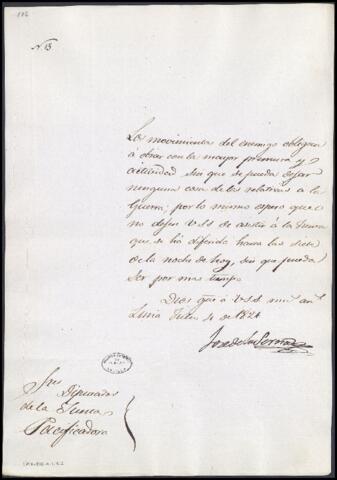 N. 13
Los movimientos del enemigo obligan
á obrar con la mayor premura y
actividad sin que se pueda dejar
ninguna cosa de las relativas a la
Guerra; por lo mismo espero que
no dejen V.S.S. de asistir á la Junta
que se há diferido hasta las siete
de la noche de hoy, sin que pueda
ser por mas tiempo
Dios gue á V.S.S. mu.s an.s
Lima Julio 4 de 1821
José de la Serna
S.res Diputados
de la Junta
Pacificadora